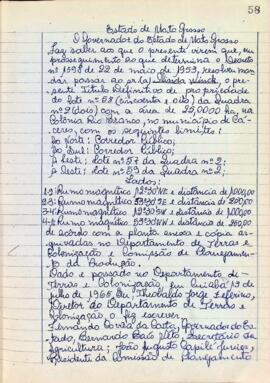 58
Estado de Mato Grosso
O Governador do Estado de Mato Grosso
Faz saber aos que o presente virem que, em
prosseguimento ao que determina o Decreto
nº 1598 de 22 de maio de 1953, resolveu man-
dar passar ao sr.(a) o pre-
sente Título Definitivo de propriedade
do lote nº 58 (cincoenta e oito) da Quadra
nº 2 (dois) com a área de 25,0000 ha, na
Colônia Rio Branco, no município de Cá-
ceres, com os seguintes limites:
ao Norte: Corredor Público;
ao Sul: Corredor Público;
a Leste: lote nº 57 da Quadra nº 2;
a Oeste: lote nº 59 da Quadra nº 2;
Lados:
1-2 Rumo magnético e distância de 1000,00
2-3 Rumo magnético e distância de
3-4 Rumo magnético e distância de 1000,00
4-1 Rumo magnético e distância de 250,00
de acordo com a planta anexa e cópia ar-
quivadas no Departamento de Terras e
Colonização e Comissão de Planejamen-
to da Produção
Dado e passado no Departamento de
Terras e Colonização, em Cuiabá, 13 de
julho de 1965, Eu, Theobaldo Jorge
Diretor do Departamento de Terras e
Colonização o fiz escrever.
Fernando Corrêa da Costa, Governador do Es-
tado, Bernardo Baís Neto, Secretário da
Agricultura; João Augusto Capilé Junior,
Presidente da Comissão de Planejamento